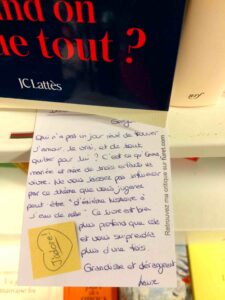 nd on
ue tout ?
JC Lattès
Qui n'a pas un jour rêvé de trouver
l'amour, le vrai, et de tout
quitter pour lui ? C'est ce qu'
mariée et mère de trois enfants
vivre. Ne vous laissez pas influencer
par ce thème que vous jugerez
peut être "d'énième histoire à
l'eau de rose". Ce livre est bien
plus profond que cela
et vous surprendra
plus d'une fois.
Grandiose et dérangeant
J'adore!
Retrouvez ma critique sur furet.com